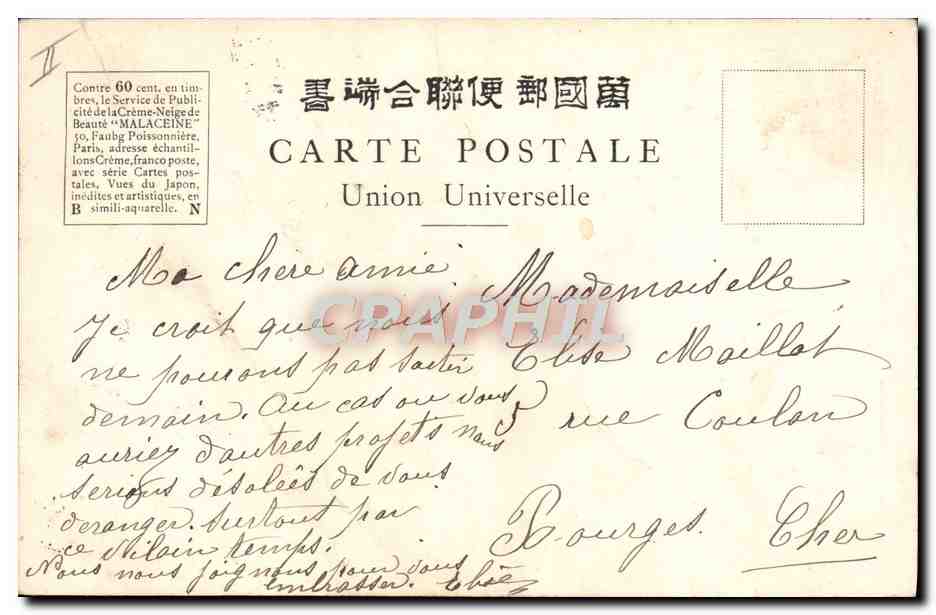 II
Contre 60 cent. en tim-
bres, le Service de Publi-
cité de la Crème-Neige de
Beauté "MALACEINE"
50, Faubg Poissonnière,
Paris, adresse échantil-
lons Crème, franco poste,
avec série Cartes pos-
tales, Vues du Japon,
inédites et artistiques, en
B simili-aquarelle. N
書端合聯便郵國萬
CARTE POSTALE
Union Universelle
Ma chere amie
Je croit que nous
ne pourons pas sortir
demain. Au cas ou vous
auriez d'autres projets nous
serions désolées de vous
deranger. surtout par
ce vilain temps.
Nous nous joignons pour vous
embrasser. Elise
Mademoiselle
Elise Maillot
5 rue Coulon
Bourges. Cher
CRAPHIL